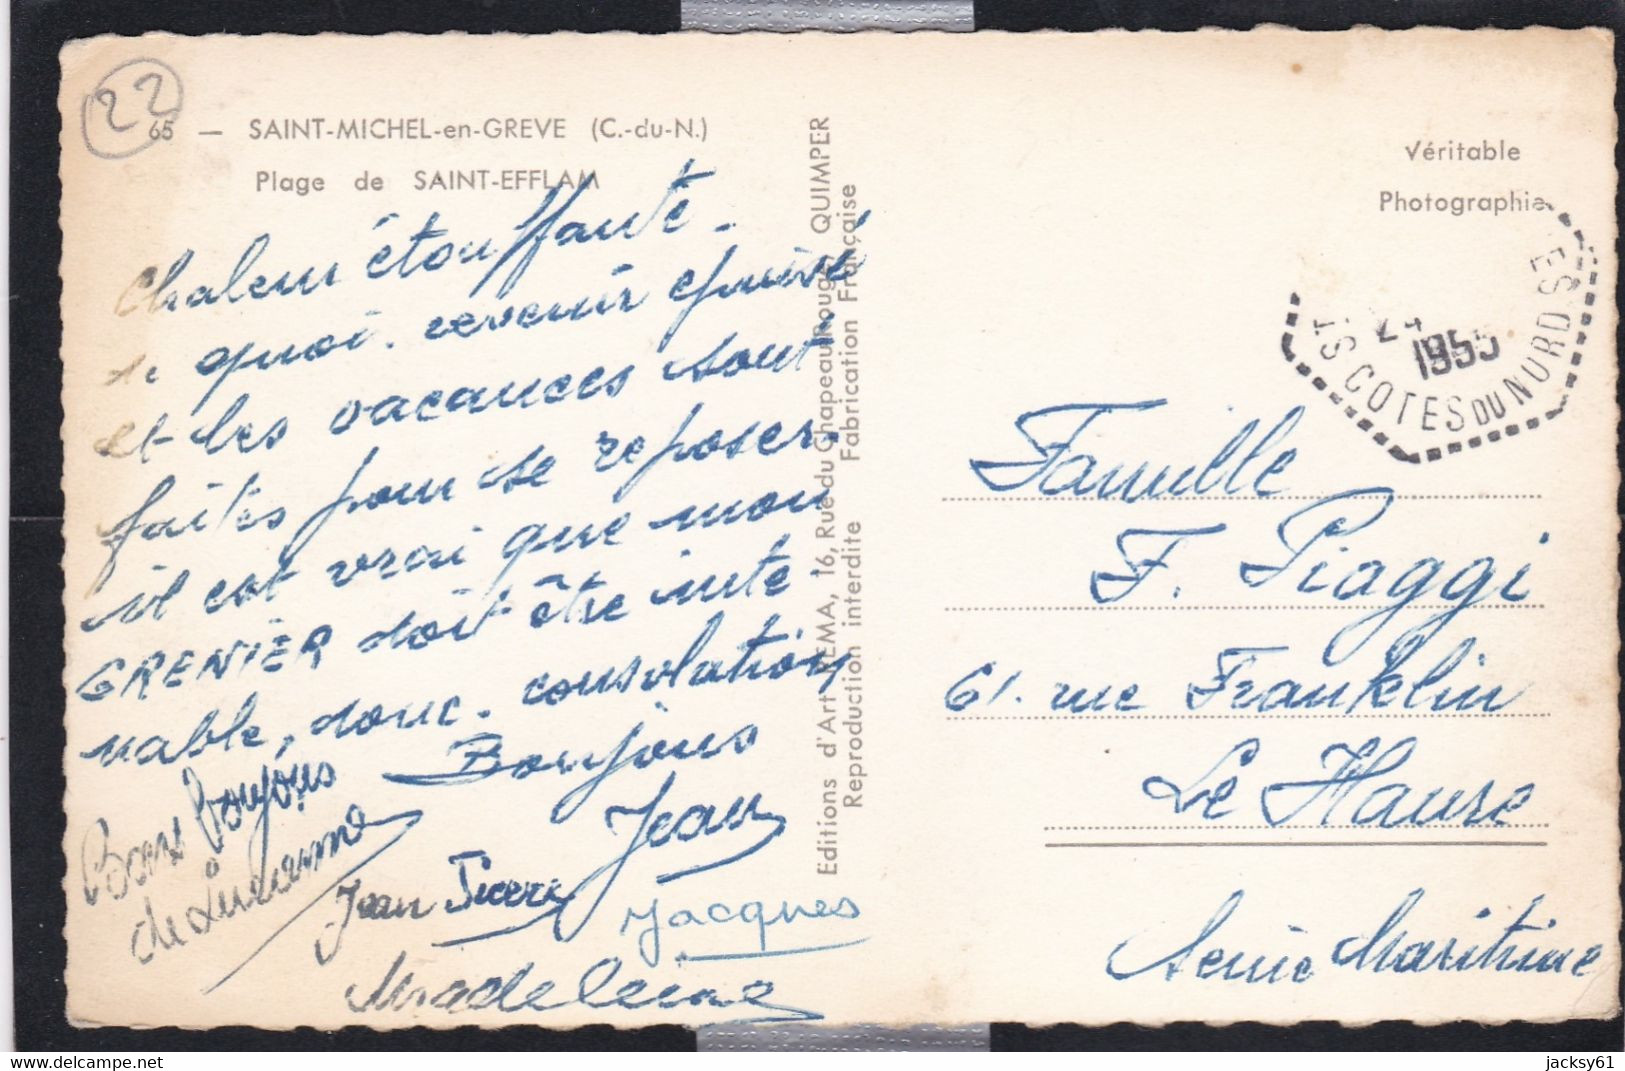 22
65 — SAINT-MICHEL-en-GREVE (C.-du-N.)
Plage de SAINT-EFFLAM
Chaleur étouffante -
de quoi revenir épuisé
et les vacances sont
faites pour se reposer.
il est vrai que mon
GRENIER doit être inte
nable, donc. consolation
Bonjours
Jean
Bons bonjours
de
Jean Pierre
Jacques
Madeleine
Editions d'Art JEMA, 16, Rue du Chapeau Rouge, QUIMPER
Reproduction interdite Fabrication Française
Véritable
Photographie
1955
COTES DU NORD
Famille
F. Piaggi
61. rue Franklin
Le Havre
Seine Maritime
jacksy61